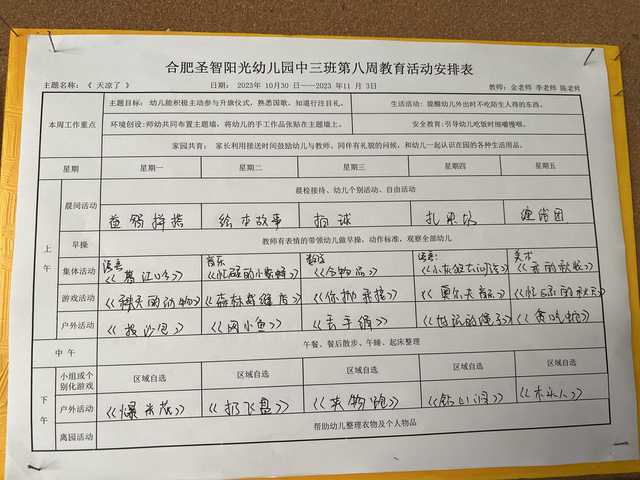 合肥圣智阳光幼儿园中三班第八周教育活动安排表
主题名称：《 天凉了 》 日期： 2023年 10月30 日——2023 年11月 3日 教师：金老师 李老师 陈老师
本周工作重点
主题目标：幼儿能积极主动参与升旗仪式，熟悉国歌，知道行注目礼。 生活活动：提醒幼儿外出时不吃陌生人得的东西。
环境创设:师幼共同布置主题墙，将幼儿的手工作品张贴在主题墙上。 安全教育:引导幼儿吃饭时细嚼慢咽。
家园共育： 家长利用接送时间鼓励幼儿与教师、同伴有礼貌的问候，和幼儿一起认识在园的各种生活用品。
星期 星期一 星期二 星期三 星期四 星期五
上午
晨间活动 晨检接待、幼儿个别活动、自由活动
益智拼搭 绘本故事 拍球
早操 教师有表情的带领幼儿做早操，动作标准，观察全部幼儿
语言 音乐 数学 语言: 美术
集体活动 《忙碌的小蜜蜂》
游戏活动 《秋天的动物》 《森林裁缝店》 《你抛我接》 《奥尔夫音乐》
户外活动 《投沙包》 《网小鱼》 《丢手绢》 《好玩的绳子》 《贪吃蛇》
中 午 午餐、餐后散步、午睡、起床整理
下午
小组或个别化游戏 区域自选 区域自选 区域自选 区域自选 区域自选
户外活动 《爆米花》 《扔飞盘》 《夹物跑》 《钻山洞》 《木头人》
离园活动 帮助幼儿整理衣物及个人物品